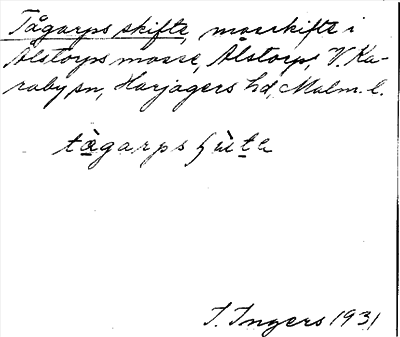 Tågarps skifte, mosskifte i
Alstorps mosse, Alstorp, V. Ka-
raby sn, Harjagers hd, Malm. l.
I. Ingers 1931